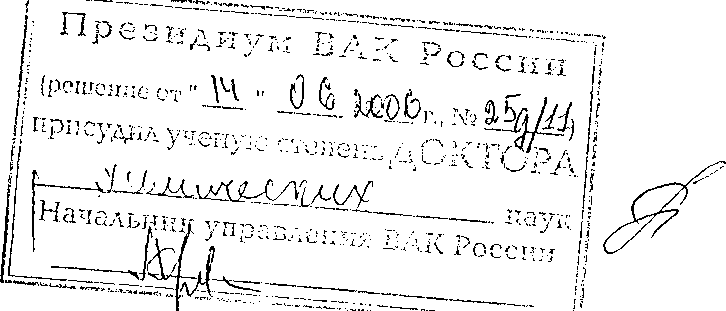 Президиум ВАК России
(решение от "14" 06 2000г., № 25д/11)
присудил ученую степень ДОКТОРА
химических наук
Начальник управления ВАК России